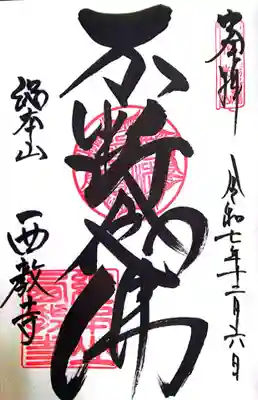 奉拝
令和七年十二月六日
不断念佛
総本山
西教寺